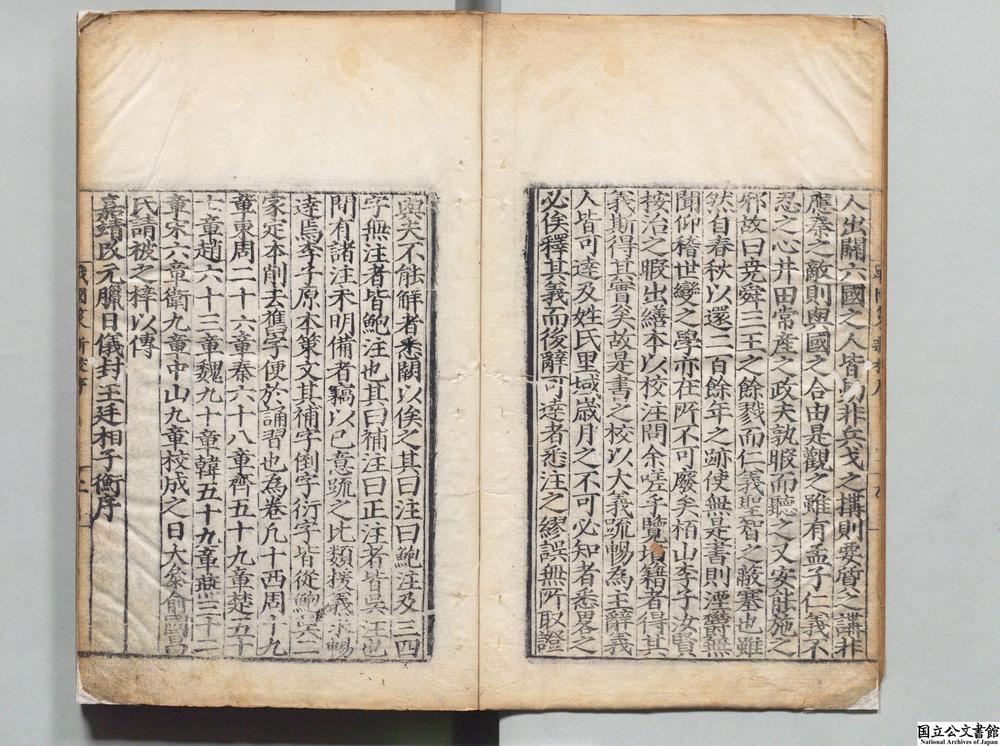 人出關六國之人皆
非兵戈之搆則
應秦之敵則與國之合由是觀之雖有孟子仁義不
忍之心井田常產之政夫孰暇而聽之又安能施之
邪故曰毋舜三王之餘戮而仁義聖智之蔽塞也雖
然自春秋以還二百餘年之跡使無是書則湮欝無
聞仰稽世變之學亦在所不可廢矣栢山李子汝賢
按治之暇出繕本以校注問余嗟乎覽墳籍者得其
義斯得其實矣故是書之校以大義疏暢為主辭義
人皆可達及姓氏里域歲月之不可必知者悉畧之
必俟釋其義而後辭可達者悉注之繆誤無所取證
與夫不能解者悉闕以俟之其曰注曰鮑注及三四
字無注者皆鮑注也其曰補注曰正注者皆吳注也
間有諸注未明備者竊以己意疏之比類援義求暢
達焉李子原本策文其補字倒字衍字皆從鮑吳二
家定本削去舊字便於誦習也為卷凡十西周十九
章東周二十六章秦六十八章齊五十九章楚五十
七章趙六十三章魏九十章韓五十九章燕三十二
章宋六章衛九章中山九章校成之日大梁俞國昌
氏請被之梓以傳
嘉靖改元臘日儀封王廷相子衡序
国立公文書館
National Archives of Japan